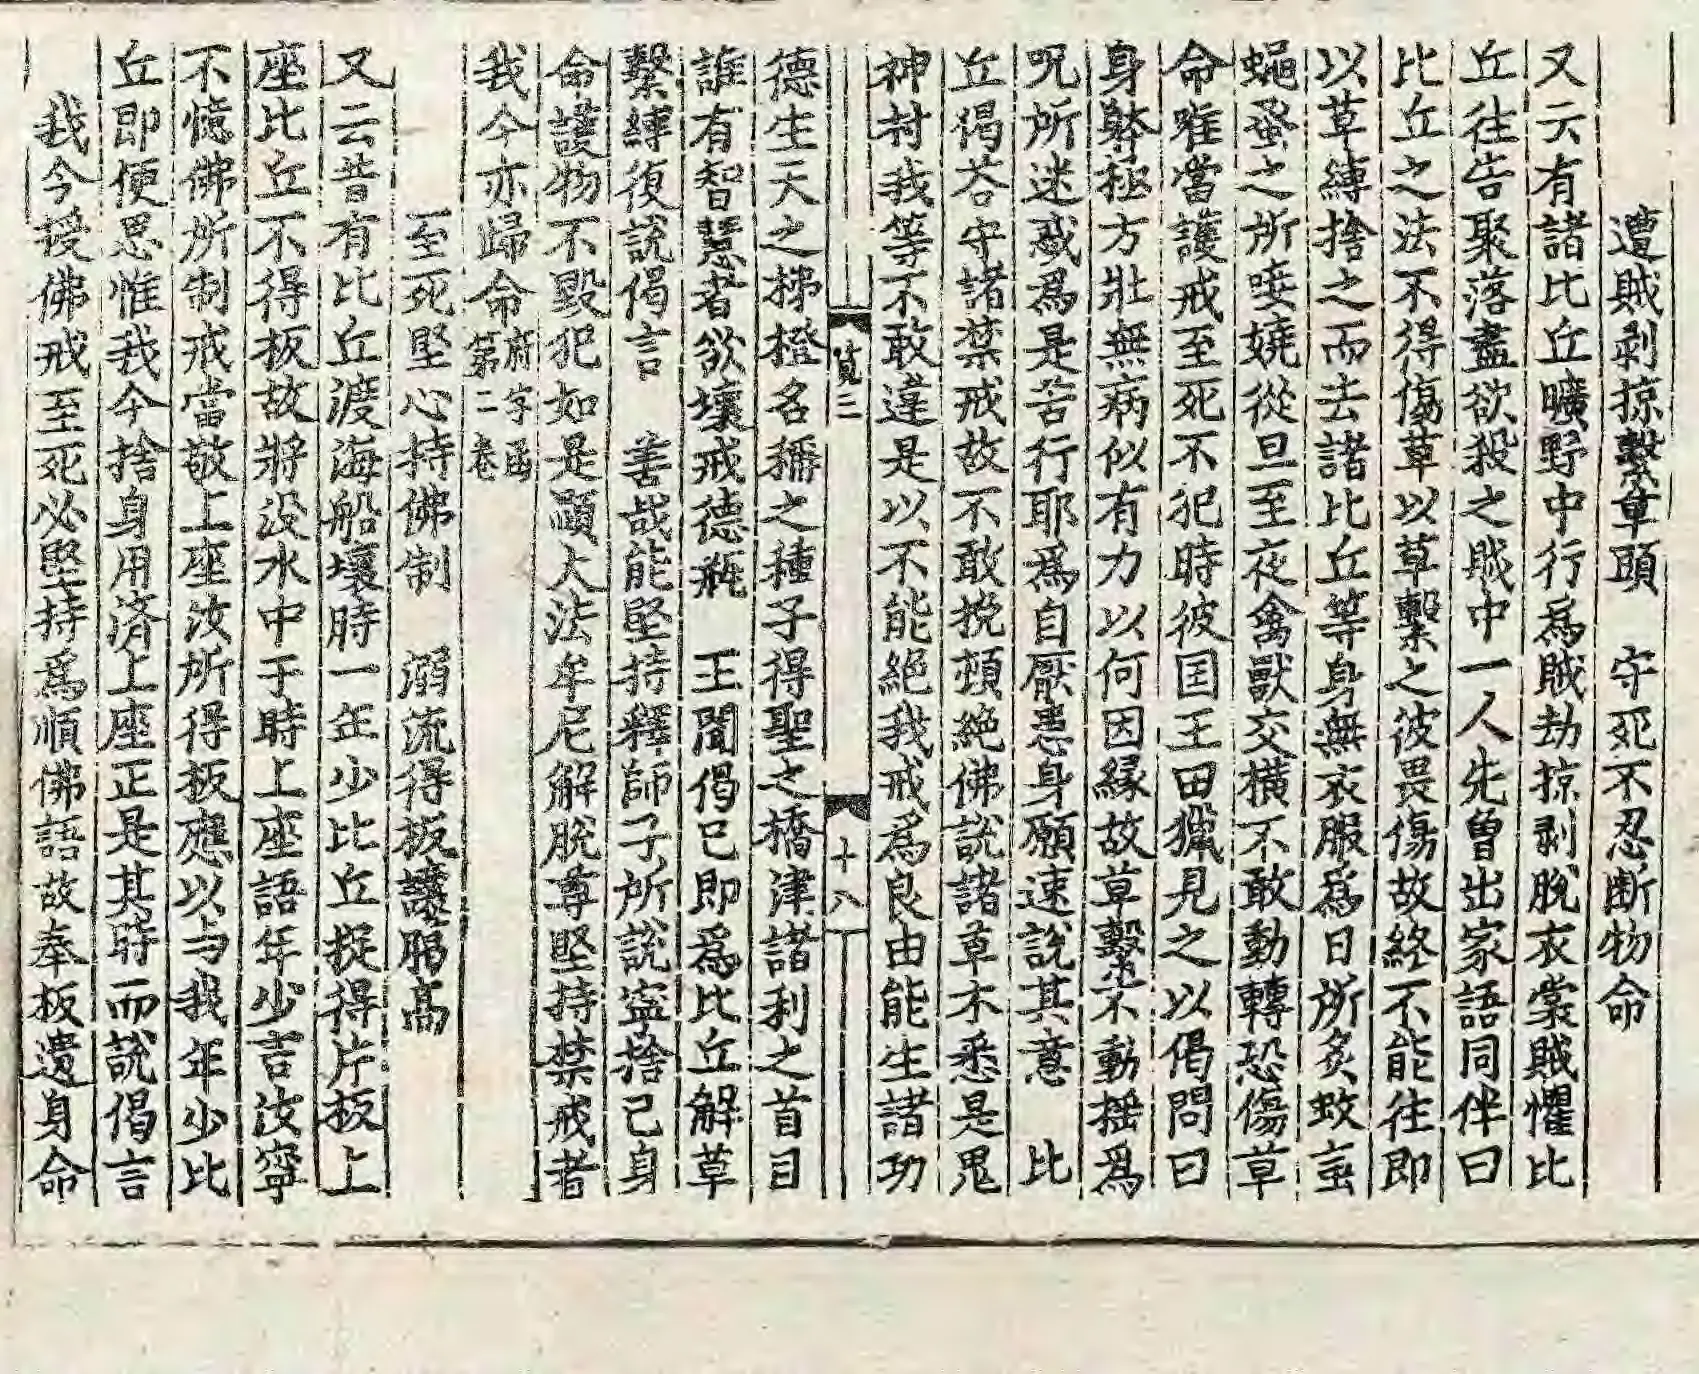 遭賊剥掠繫草頭　守死不忍断物命
又云有諸比丘曠野中行爲賊劫掠剥脫衣裳賊懼比
丘往告聚落盡欲殺之賊中一人先曾出家語同伴曰
比丘之法不得傷草以草繫之彼畏傷故終不能往即
以草縛捨之而去諸比丘等身無衣服爲日所炙蚊䖟
蠅蚤之所唼嬈從旦至夜禽獸交橫不敢動轉恐傷草
命唯當護戒至死不犯時彼国王田獵見之以偈問曰
身𨈬極方壯無病似有力以何因緣故草繫不動揺爲
咒所迷惑爲是苦行耶爲自厭患身願速說其意　比
丘偈答守諸禁戒故不敢挽頓絶佛說諸草木悉是鬼
神村我等不敢違是以不能絕我戒爲良由能生諸功
覚三　十八
德生天之梯橙名稱之種子得聖之橋津諸利之首目
誰有智慧者欲壞戒德瓶　王聞偈已即爲比丘解草
繫縛復說偈言　善哉能堅持釋師子所說寧捨己身
命護物不毀犯如是顯大法牟尼解脫尊堅持禁戒者
我今亦歸命府字函第二卷
至死堅心持佛制　溺流得板讓𦡀高
又云昔有比丘渡海船壞時一年少比丘捉得片板上
座比丘不得板故將没水中于時上座語年少言汝寧
不憶佛所制戒當敬上座汝所得板應以与我年少比
丘即便思惟我今捨身用済上座正是其時而說偈言
我今援佛戒至死必堅持爲順佛語故奉板遺身命